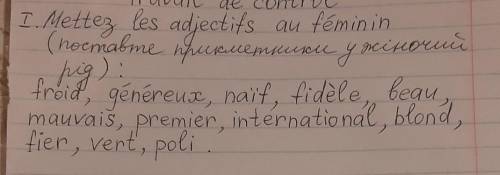 Travail de contrôl
I. Mettez les adjectifs au féminin
(поставте прикметники у жіночий
рід):
froid, généreux, naïf, fidèle, beau,
mauvais, premier, international, blond,
fier, vert, poli.